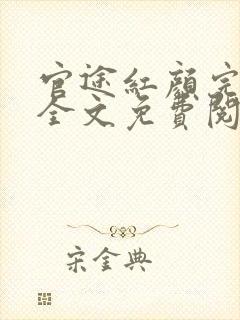 官途紅顏完
全文免費閱
宋金典